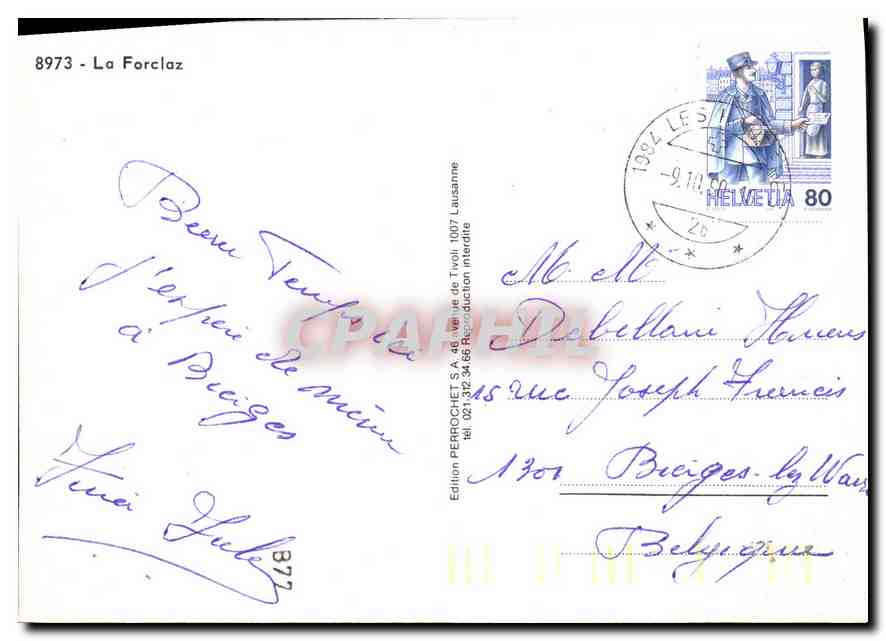 8973 - La Forclaz
Beau Temps ici
j'espère de même
à Bierges
Jules
B77
Edition PERROCHET S.A. 46 avenue de Tivoli 1007 Lausanne
tél. 021.312.34.66 Reproduction interdite
CPAPHIL
1984 LES
-9.10.90
2b
HELVETIA 80
M M
Debellani
15 rue Joseph Francis
1301 Bierges-lez Wavre
Belgique